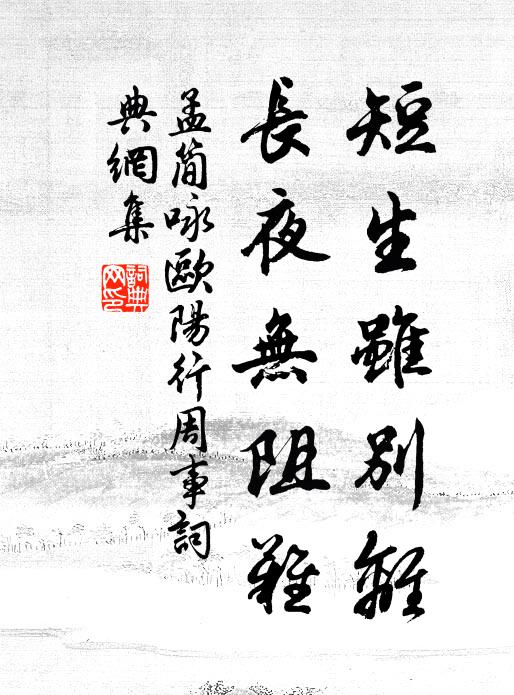 短生雖別離
長夜無阻難
孟簡咏歐陽行周事詞
典網集
詞典
网印